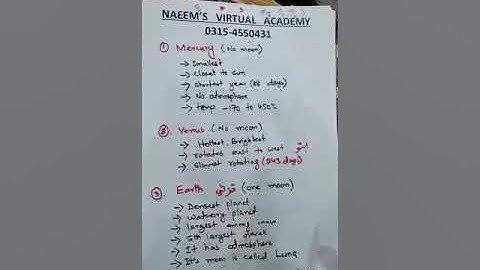 NAEEM'S VIRTUAL ACADEMY
0315-4550431
① Mercury (No moon)
→ Smallest
→ Closet to sun
→ Shortest year (88 days)
→ No admosphere
→ temp -170 to 450℃
② Venus (No moon)
→ Hottest, Brightest
→ rotates east to west
→ Slowest rotating (243 days)
③ Earth (one moon)
→ Densest planet
→ Watvery planet
→ largest among inner
→ 5th largest overall
→ It has admosphere
→ It's moon is called Luna